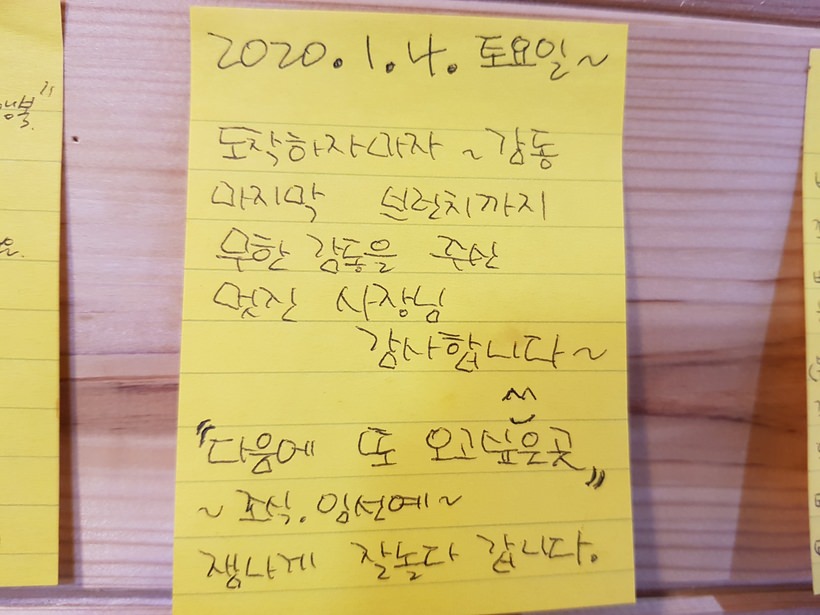 2020.1.4. 토요일~
도착하자마자 ~ 감동
마지막 브런치까지
무한 감동을 주신
멋진 사장님
감사합니다~
^^
"다음에 또 오고싶은곳"
~ 조식. 임선예 ~
쟴나게 잘놀다 갑니다.